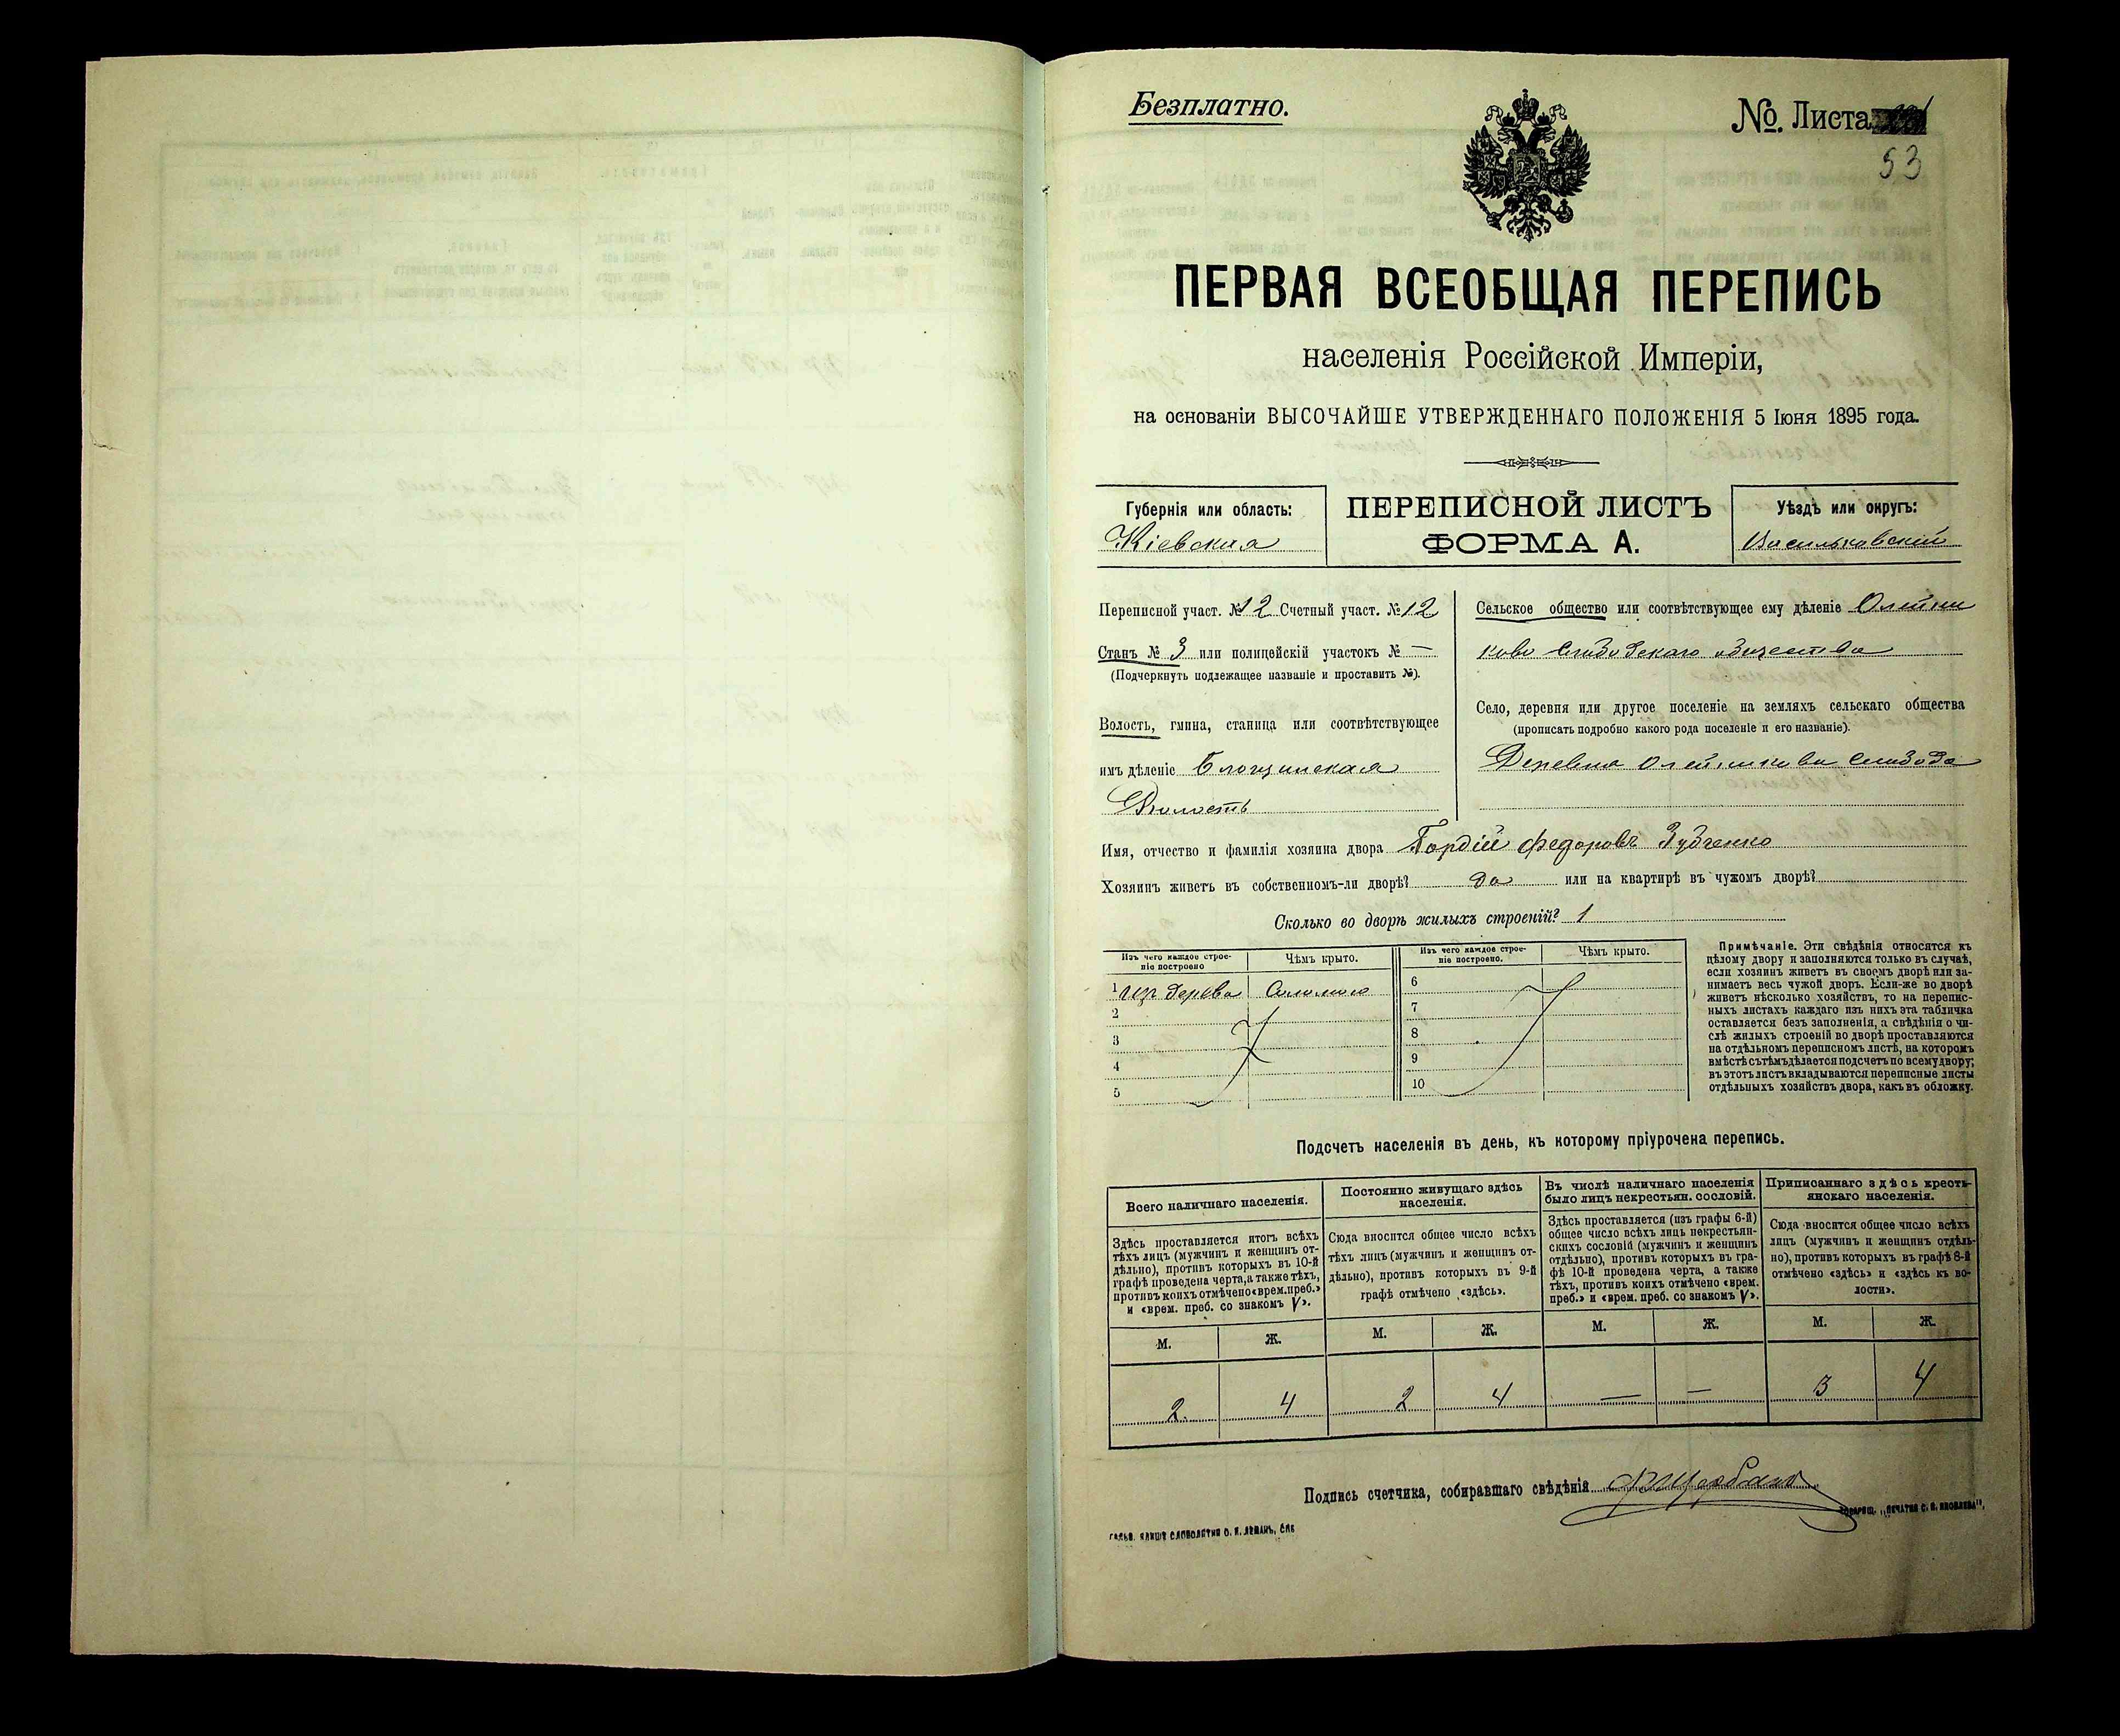 Безплатно.
№. Листа
53
ПЕРВАЯ ВСЕОБЩАЯ ПЕРЕПИСЬ
населенія Россійской Имперіи,
на основаніи ВЫСОЧАЙШЕ УТВЕРЖДЕННАГО ПОЛОЖЕНІЯ 5 Іюня 1895 года.
Губернія или область:
Кіевская
ПЕРЕПИСНОЙ ЛИСТЪ
ФОРМА А.
Уѣздъ или округъ:
Васильковскій
Переписной участ. № 12 Счетный участ. № 12
Станъ № 3 или полицейскій участокъ № —
(Подчеркнуть подлежащее названіе и проставить №).
Волость, гмина, станица или соотвѣтствующее
имъ дѣленіе Блощинская
Волость
Сельское общество или соотвѣтствующее ему дѣленіе Олейни
ково Слободскаго общества
Село, деревня или другое поселеніе на земляхъ сельскаго общества
(прописать подробно какого рода поселеніе и его названіе).
Деревня Олейникова Слобода
Имя, отчество и фамилія хозяина двора Гордій Федоровъ Зубченко
Хозяинъ живетъ въ собственномъ-ли дворѣ? да или на квартирѣ въ чужомъ дворѣ?
Сколько во дворѣ жилыхъ строеній? 1
Изъ чего каждое строе-
ніе построено
Чѣмъ крыто.
Изъ чего каждое строе-
ніе построено.
Чѣмъ крыто.
1 изъ дерева Соломою
2
3
4
5
6
7
8
9
10
Примѣчаніе. Эти свѣдѣнія относятся къ
цѣлому двору и заполняются только въ случаѣ,
если хозяинъ живетъ въ своемъ дворѣ или за-
нимаетъ весь чужой дворъ. Если-же во дворѣ
живетъ нѣсколько хозяйствъ, то на перепис-
ныхъ листахъ каждаго изъ нихъ эта табличка
оставляется безъ заполненія, а свѣдѣнія о чи-
слѣ жилыхъ строеній во дворѣ проставляются
на отдѣльномъ переписномъ листѣ, на которомъ
вмѣстѣ съ тѣмъ дѣлается подсчетъ по всему двору;
въ этотъ листъ вкладываются переписные листы
отдѣльныхъ хозяйствъ двора, какъ въ обложку.
Подсчетъ населенія въ день, къ которому пріурочена перепись.
Всего наличнаго населенія.
Здѣсь проставляется итогъ всѣхъ
тѣхъ лицъ (мужчинъ и женщинъ от-
дѣльно), противъ которыхъ въ 10-й
графѣ проведена черта, а также тѣхъ,
противъ коихъ отмѣчено «врем. преб.»
и «врем. преб. со знакомъ V».
Постоянно живущаго здѣсь
населенія.
Сюда вносится общее число всѣхъ
тѣхъ лицъ (мужчинъ и женщинъ от-
дѣльно), противъ которыхъ въ 9-й
графѣ отмѣчено «здѣсь».
Въ числѣ наличнаго населенія
было лицъ некрестьян. сословій.
Здѣсь проставляется (изъ графы 6-й)
общее число всѣхъ лицъ некрестьян-
скихъ сословій (мужчинъ и женщинъ
отдѣльно), противъ которыхъ въ гра-
фѣ 10-й проведена черта, а также
тѣхъ, противъ коихъ отмѣчено «врем.
преб.» и «врем. преб. со знакомъ V».
Приписаннаго здѣсь кресть-
янскаго населенія.
Сюда вносится общее число всѣхъ
лицъ (мужчинъ и женщинъ отдѣль-
но), противъ которыхъ въ графѣ 8-й
отмѣчено «здѣсь» и «здѣсь къ во-
лости».
М. Ж. М. Ж. М. Ж. М. Ж.
2. 4 2 4 — — 3 4
Подпись счетчика, собиравшаго свѣдѣнія
СЛОВОЛИТНИ О. И. ЛЕМАНЪ, СПБ
ТОВАРИЩ. „ПЕЧАТНЯ С. П. ЯКОВЛЕВА“.